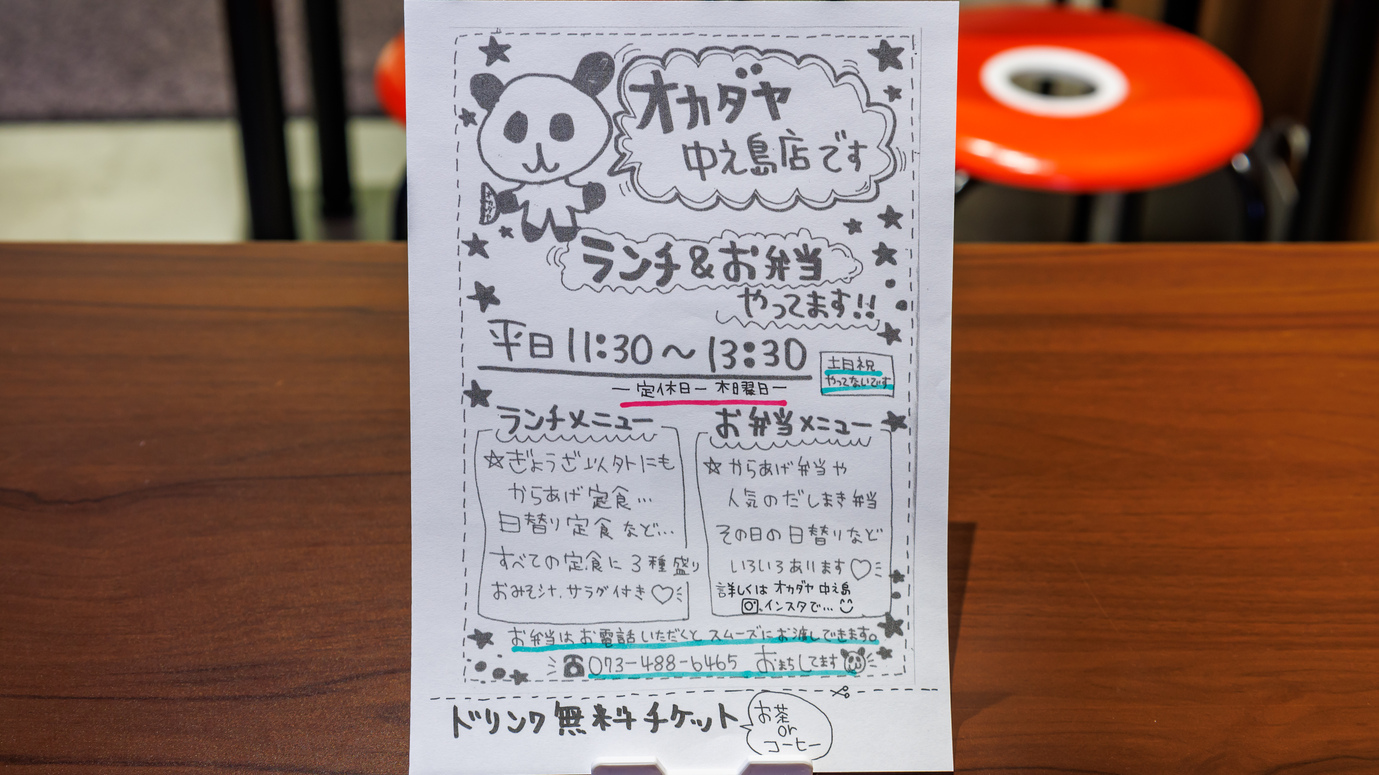 オカダヤ
中之島店です
ランチ&お弁当
やってます!!
平日 11:30〜13:30
土日祝
やってないです
ー定休日ー 木曜日ー
ランチメニュー
☆ぎょうざ以外にも
からあげ定食…
日替り定食など…
すべての定食に3種盛り
おみそ汁、サラダ付き♡
お弁当メニュー
☆からあげ弁当や
人気のだしまき弁当
その日の日替りなど
いろいろあります♡
詳しくは オカダヤ中之島
インスタで…
お弁当はお電話いただくとスムーズにお渡しできます。
☎073-488-6465 おまちしてます
ドリンク無料チケット
お茶
or
コーヒー